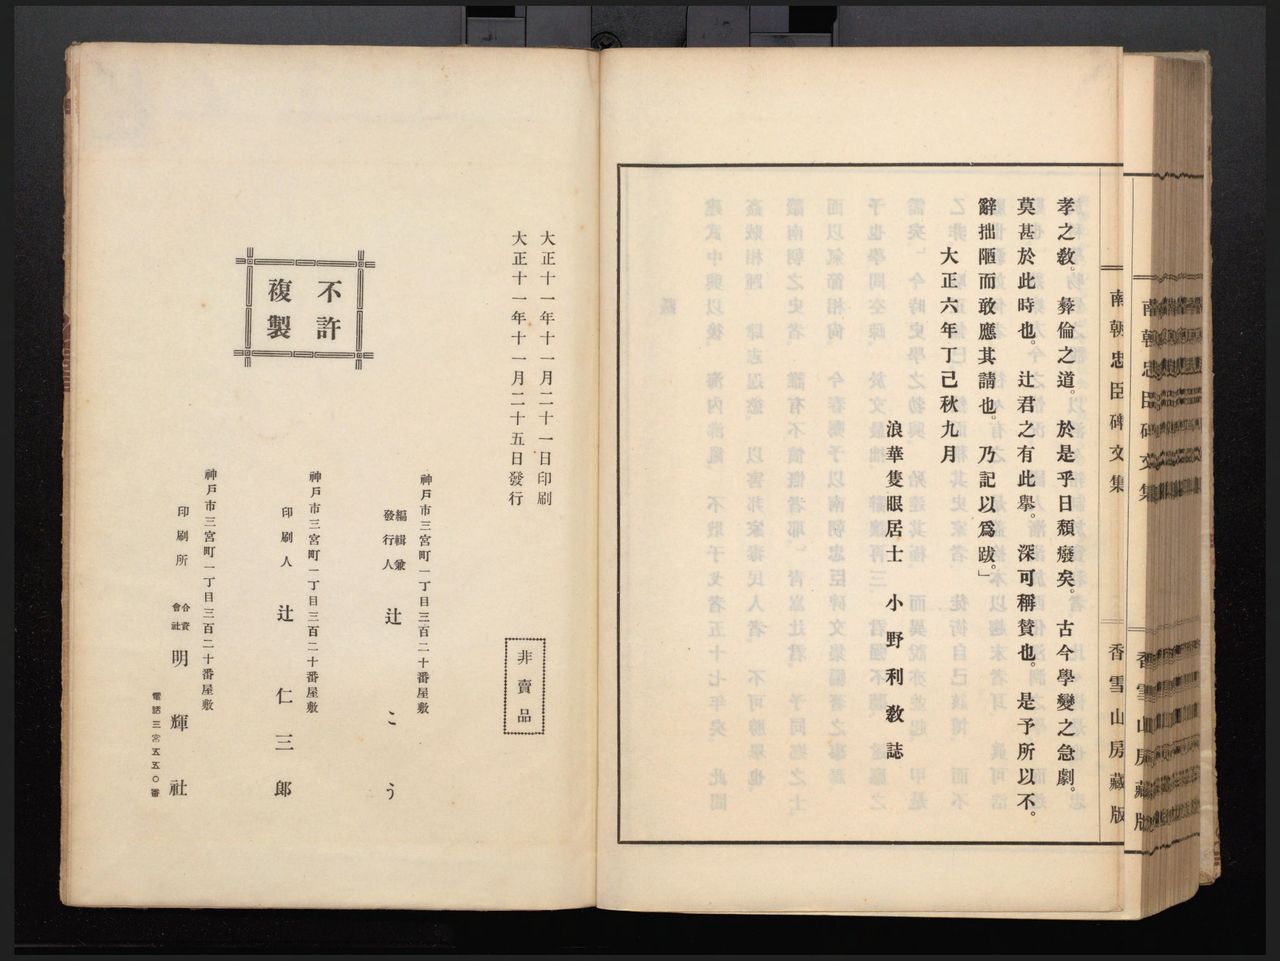 孝之教。彝倫之道。於是乎日頽癈矣。古今學變之急劇。
莫甚於此時也。辻君之有此擧。深可稱賛也。是予所以不。
辭拙陋而敢應其請也。乃記以爲跋。」
大正六年丁己秋九月
浪華隻眼居士 小野利教誌
南朝忠臣碑文集
香雪山房藏版
南朝忠臣碑文集
香雪山房藏版
大正十一年十一月二十一日印刷
大正十一年十一月二十五日發行
非賣品
不許
複製
神戸市三宮町一丁目三百二十番屋敷
編輯兼
發行人
辻こう
神戸市三宮町一丁目三百二十番屋敷
印刷人 辻仁三郎
神戸市三宮町一丁目三百二十番屋敷
印刷所
合資
會社
明輝社
電話三宮五五〇番